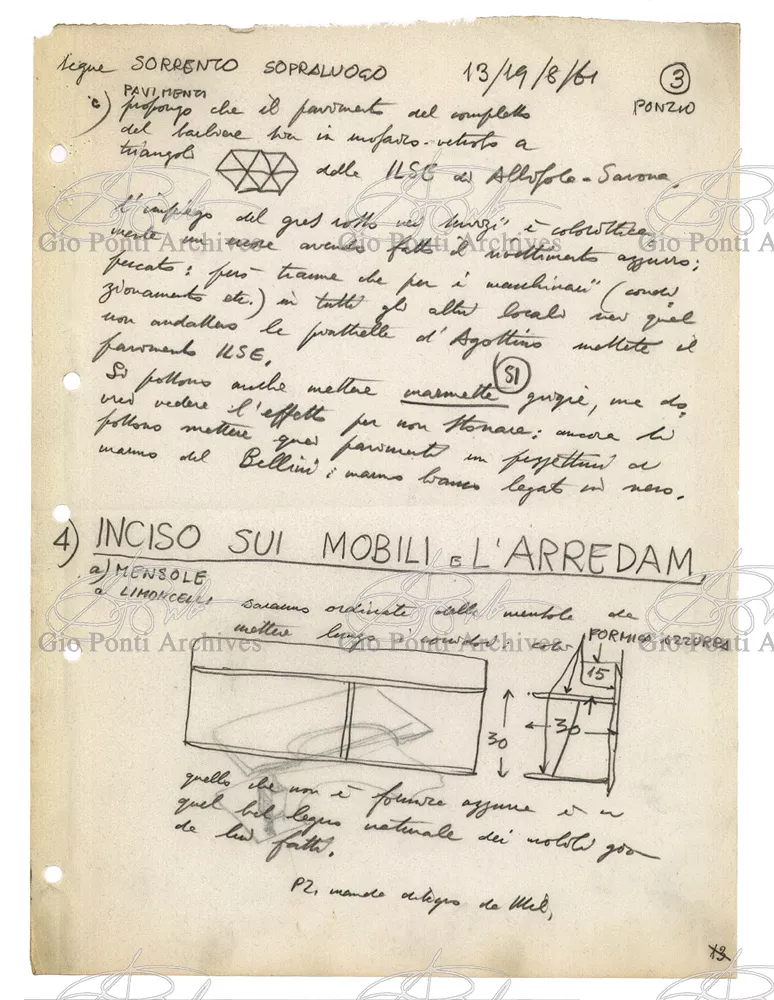 segue SORRENTO SOPRALUOGO 13/19/8/61 3
PAVIMENTI PONZIO
c) propongo che il pavimento del completo
del barbiere sia in mosaico-vetroso a
triangoli delle ILSE di Albisola-Savona.
L'impiego del gres rosso nei "servizi" è coloristica
mente un errore avendo fatto il rivestimento azzurro;
peccato: però tranne che per i "macchinari" (condi
zionamento etc.) in tutti gli altri locali nei quali
non andassero le piastrelle d'Agostino mettete il
pavimento ILSE.
SI
Si possono anche mettere marmette grigie, ma do
vrei vedere l'effetto per non stonare: ancora si
possono mettere quei pavimenti in pezzettini di
marmo del Bellini: marmo bianco legato in nero.
4) INCISO SUI MOBILI E L'ARREDAM.
a) MENSOLE
a LIMONCELLI saranno ordinate delle mensole da
mettere lungo i FORMICA AZZURRA
15
30
30
quello che non è formica azzurra è in
quel bel legno naturale dei mobili già
da lui fatti.
PZ. manda disegno da Mil.
13
Gio Ponti Archives
Gio Ponti Archives
Gio Ponti A
Gio Ponti Archives
Gio Ponti Archives
Gio Ponti A